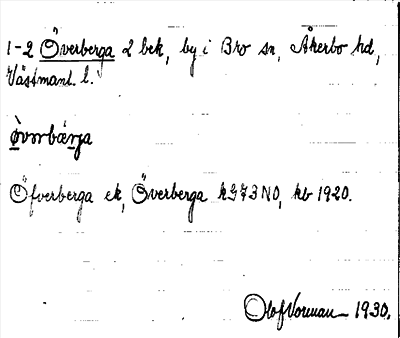 1-2 Överberga 2 bek, by i Bro sn, Åkerbo hd,
Västmanl. l.
Öfverberga ek, Överberga kG73NO, kb 1920.
Olof Vorman 1930.